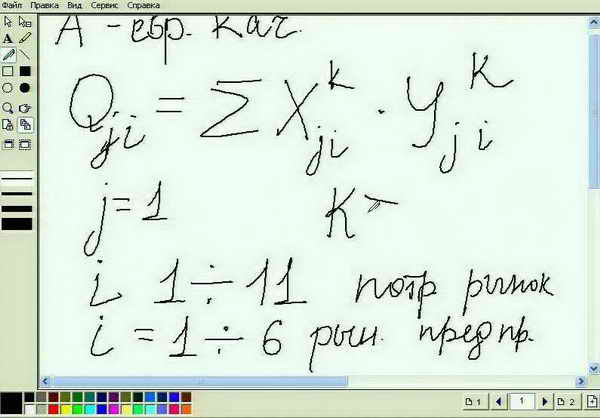 Файл Правка Вид Сервис Справка
А - евр. кач.
Qji = Σ Xji^k · Yji^k
j = 1 K
i 1 ÷ 11 потр рынок
i = 1 ÷ 6 рын. предпр.
1 1 2